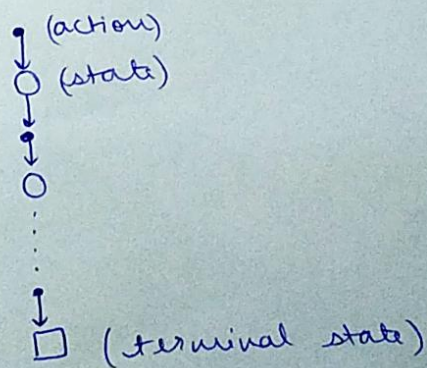 (action)
(state)
(terminal state)